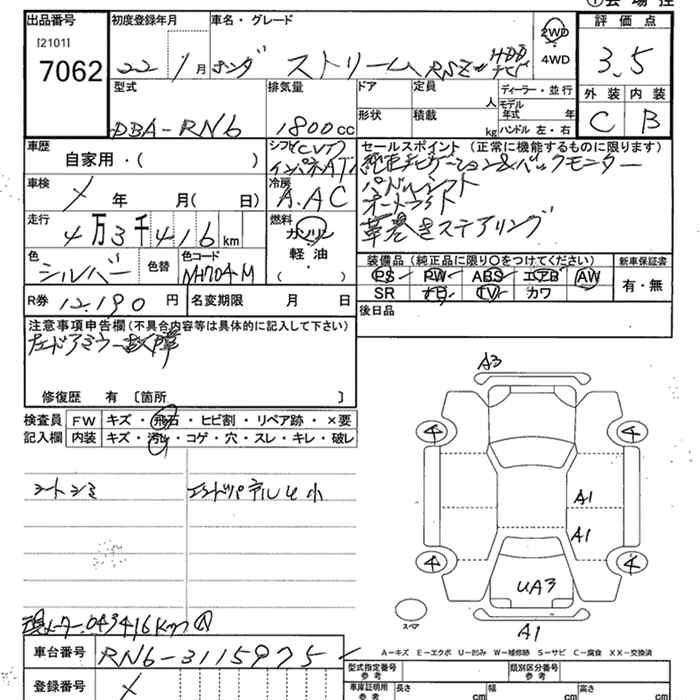 ①会場控
出品番号 初度登録年月 車名・グレード 評価点
[2101]
7062
22年1月 ホンダ ストリーム RSZ HDDナビ
2WD
4WD
3.5
外装 内装
C B
型式 排気量 ドア 定員 人 ディーラー・並行
モデル年式 年
DBA-RN6 1800cc 形状 積載 kg ハンドル 左・右
車歴 自家用・( )
シフト CVT
インパネAT
セールスポイント (正常に機能するものに限ります)
純正ナビゲーション&バックモニター
パドルシフト
オートライト
革巻きステアリング
車検 ✗ 年 月( 日)
冷房 A.AC
走行 4万3千416km
燃料 ガソリン
軽油
( )
色 シルバー 色替 色コード NH704-M
装備品 (純正品に限り○をつけてください) 新車保証書
PS PW ABS エアB AW
SR ナビ TV カワ
有・無
R券 12,190円 名変期限 月 日
後日品
注意事項申告欄(不具合内容等は具体的に記入して下さい)
左ドアミラー故障
修復歴 有 〔箇所 〕
検査員記入欄
FW キズ・飛石・ヒビ割・リペア跡・×要
内装 キズ・汚れ・コゲ・穴・スレ・キレ・破レ
シートシミ エンドパネルU小
A3
4 4
A1
A1
4 4
UA3
スペア
A1
現メーター 043416km
A-キズ E-エクボ U-凹み W-補修跡 S-サビ C-腐食 XX-交換済
車台番号 RN6-3115975
登録番号 ✗
型式指定番号 参考 類別区分番号 参考
車庫証明用 参考 長さ cm 幅 cm 高さ cm